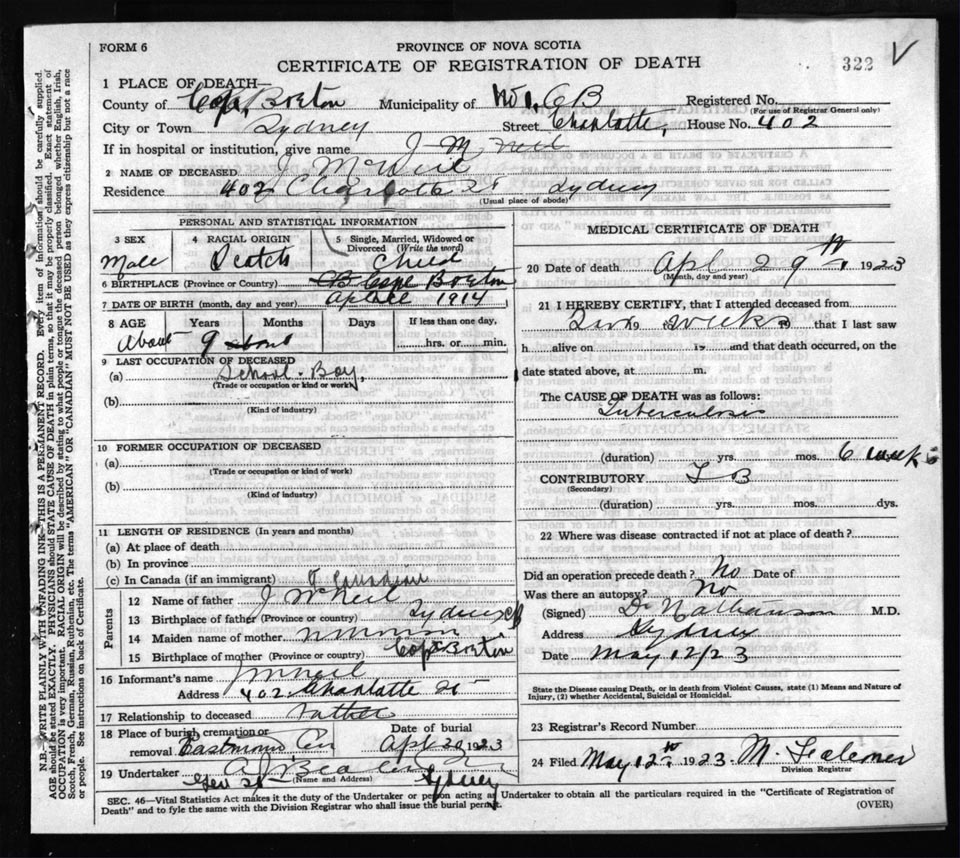 FORM 6
PROVINCE OF NOVA SCOTIA
CERTIFICATE OF REGISTRATION OF DEATH
322
V
1 PLACE OF DEATH—
County of Cape Breton Municipality of No 1, CB Registered No.
(For use of Registrar General only)
City or Town Sydney Street Charlotte, House No. 402
If in hospital or institution, give name J McNeil
2 NAME OF DECEASED J McNeil
Residence 402 Charlotte St Sydney
(Usual place of abode)
PERSONAL AND STATISTICAL INFORMATION
3 SEX 4 RACIAL ORIGIN 5 Single, Married, Widowed or Divorced (Write the word)
Male Scotch Child
6 BIRTHPLACE (Province or Country) CB Cape Breton
7 DATE OF BIRTH (month, day and year) 1914
8 AGE Years Months Days If less than one day,
About 9 about hrs. or min.
9 LAST OCCUPATION OF DECEASED
(a) School-Boy,
(Trade or occupation or kind or work)
(b)
(Kind of industry)
10 FORMER OCCUPATION OF DECEASED
(a)
(Trade or occupation or kind of work)
(b)
(Kind of industry)
11 LENGTH OF RESIDENCE (In years and months)
(a) At place of death
(b) In province
(c) In Canada (if an immigrant) Canadian
Parents
12 Name of father J McNeil
13 Birthplace of father (Province or country) Sydney CB
14 Maiden name of mother
15 Birthplace of mother (Province or country) Cape Breton
16 Informant's name J McNeil
Address 402 Charlotte St
17 Relationship to deceased Father
18 Place of burial, cremation or removal Date of burial
Eastmount Cem Apl 30 1923
19 Undertaker A J Beaton
(Name and Address)
Geo St Sydney
MEDICAL CERTIFICATE OF DEATH
20 Date of death Apl 29th, 1923
(Month, day and year)
21 I HEREBY CERTIFY, that I attended deceased from
weeks 19 that I last saw
h alive on 19 and that death occurred, on the
date stated above, at m.
The CAUSE OF DEATH was as follows:
Tuberculosis
(duration) yrs. mos. 6 weeks
CONTRIBUTORY T B
(Secondary)
(duration) yrs. mos. dys.
22 Where was disease contracted if not at place of death?
Did an operation precede death? No Date of
Was there an autopsy? No
(Signed) Dr Nathanson M.D.
Address Sydney
Date May 12/23
State the Disease causing Death, or in death from Violent Causes, state (1) Means and Nature of Injury, (2) whether Accidental, Suicidal or Homicidal.
23 Registrar's Record Number
24 Filed May 12th 1923 M.
Division Registrar
SEC. 46—Vital Statistics Act makes it the duty of the Undertaker or person acting as Undertaker to obtain all the particulars required in the "Certificate of Registration of
Death" and to fyle the same with the Division Registrar who shall issue the burial permit.
(OVER)
N.B.—WRITE PLAINLY WITH UNFADING INK—THIS IS A PERMANENT RECORD. Every item of information should be carefully supplied.
AGE should be stated EXACTLY. PHYSICIANS should STATE CAUSE OF DEATH in plain terms, so that it may be properly classified. Exact statement of
OCCUPATION is very important. RACIAL ORIGIN will be described by stating to what people or tongue the deceased person belonged whether English, Irish,
Scotch, French, German, Russian, Ruthenian, etc. The terms "AMERICAN" OR "CANADIAN" MUST NOT BE USED as they express citizenship but not a race
or people. See instructions on back of Certificate.